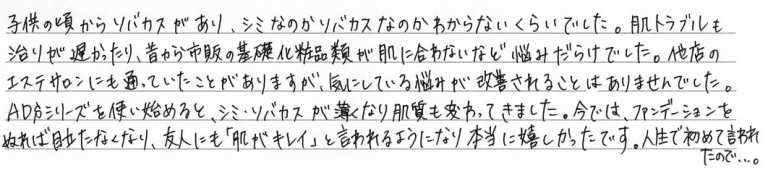 子供の頃からソバカスがあり、シミなのかソバカスなのかわからないくらいでした。肌トラブルも
治りが遅かったり、昔から市販の基礎化粧品類が肌に合わないなど悩みだらけでした。他店の
エステサロンにも通っていたことがありますが、気にしている悩みが改善されることはありませんでした。
AD分シリーズを使い始めると、シミ・ソバカスが薄くなり肌質も変わってきました。今では、ファンデーションを
ぬれば目立たなくなり、友人にも「肌がキレイ」と言われるようになり本当に嬉しかったです。人生で初めて言われ
たので…。